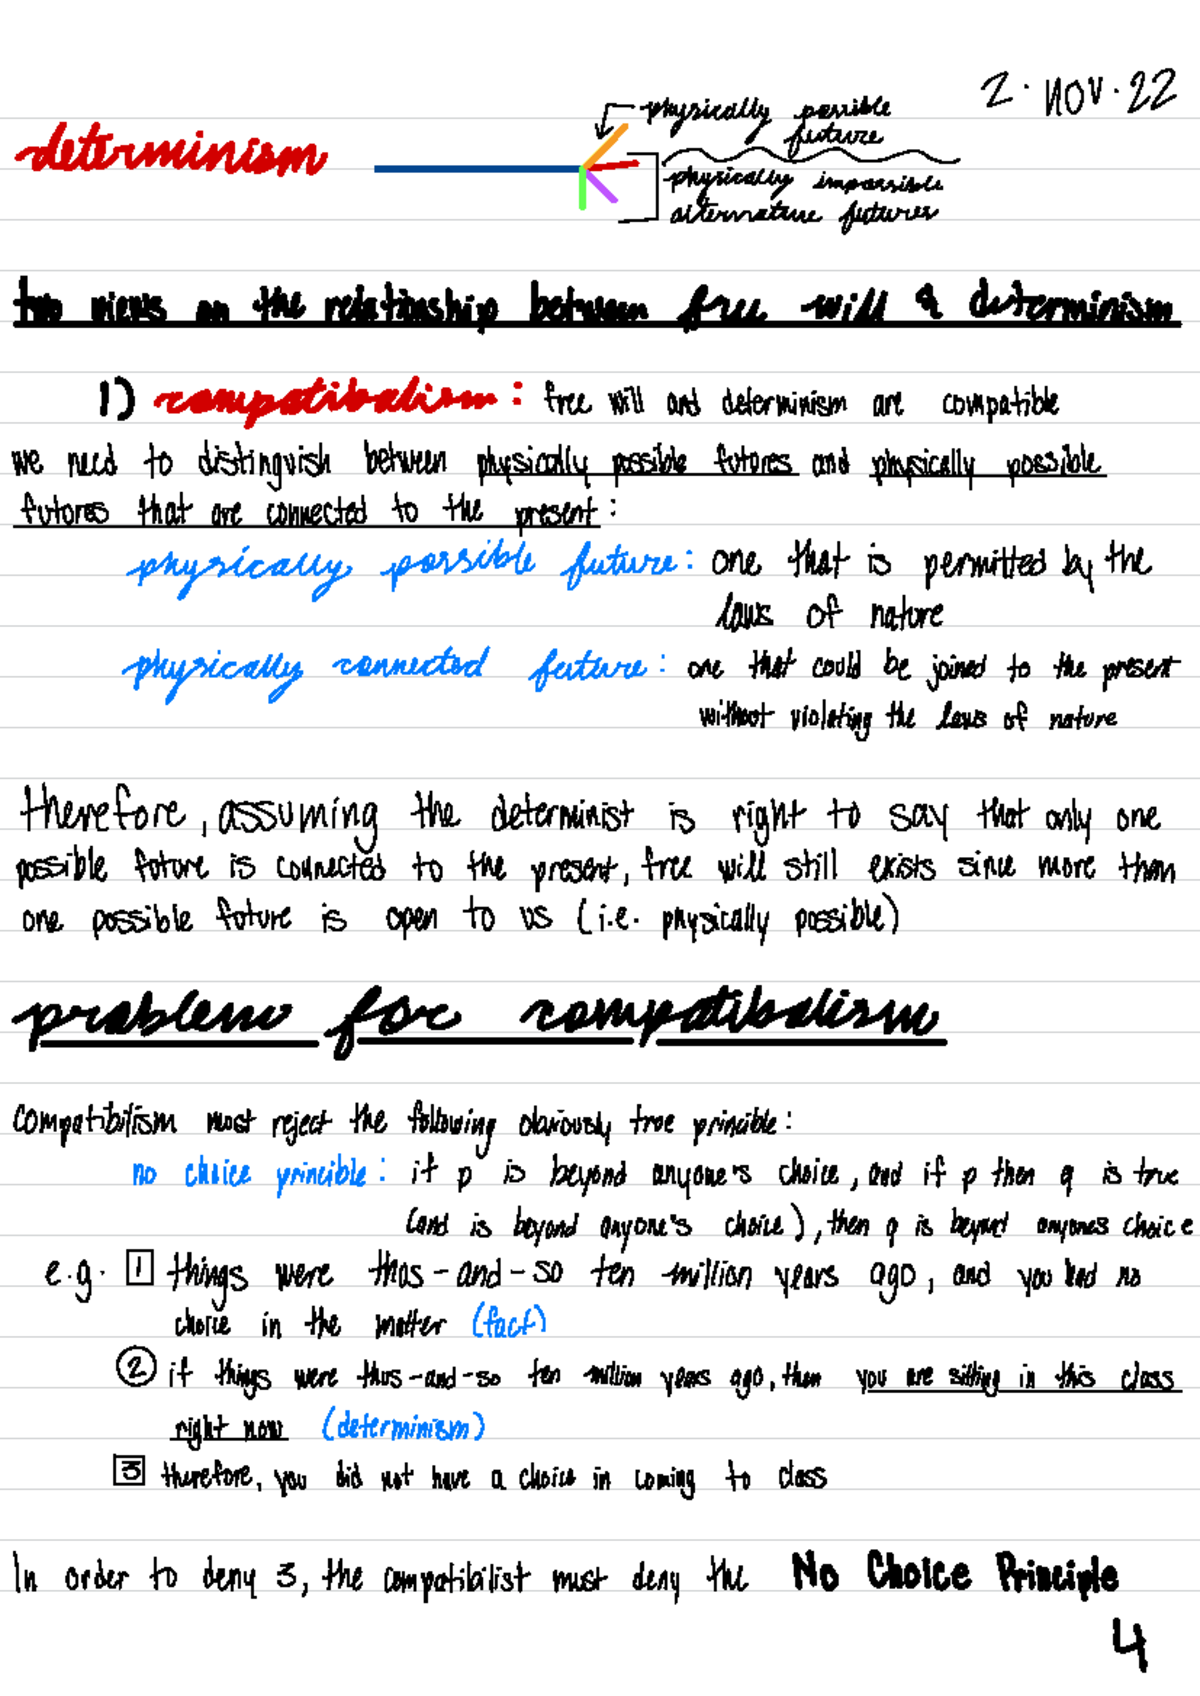 2. NOV. 22
determinism
physically possible
future
physically impossible
alternature futures
two views on the relationship between free will & determinism
1) compatibalism: free will and determinism are compatible
we need to distinguish between physically possible futures and physically possible
futures that are connected to the present:
physically possible future: one that is permitted by the
laws of nature
physically connected future: one that could be joined to the present
without violating the laws of nature
therefore, assuming the determinist is right to say that only one
possible future is connected to the present, free will still exists since more than
one possible future is open to us (i.e. physically possible)
problem for compatibalism
compatibilism must reject the following obviously true principle:
no choice principle: if p is beyond anyone's choice, and if p then q is true
(and is beyond anyone's choice), then q is beyond anyones choice
e.g. 1 things were thus-and-so ten million years ago, and you had no
choice in the matter (fact)
2 if things were thus-and-so ten million years ago, then you are sitting in this class
right now (determinism)
3 therefore, you did not have a choice in coming to class
In order to deny 3, the compatibilist must deny the No Choice Principle
4